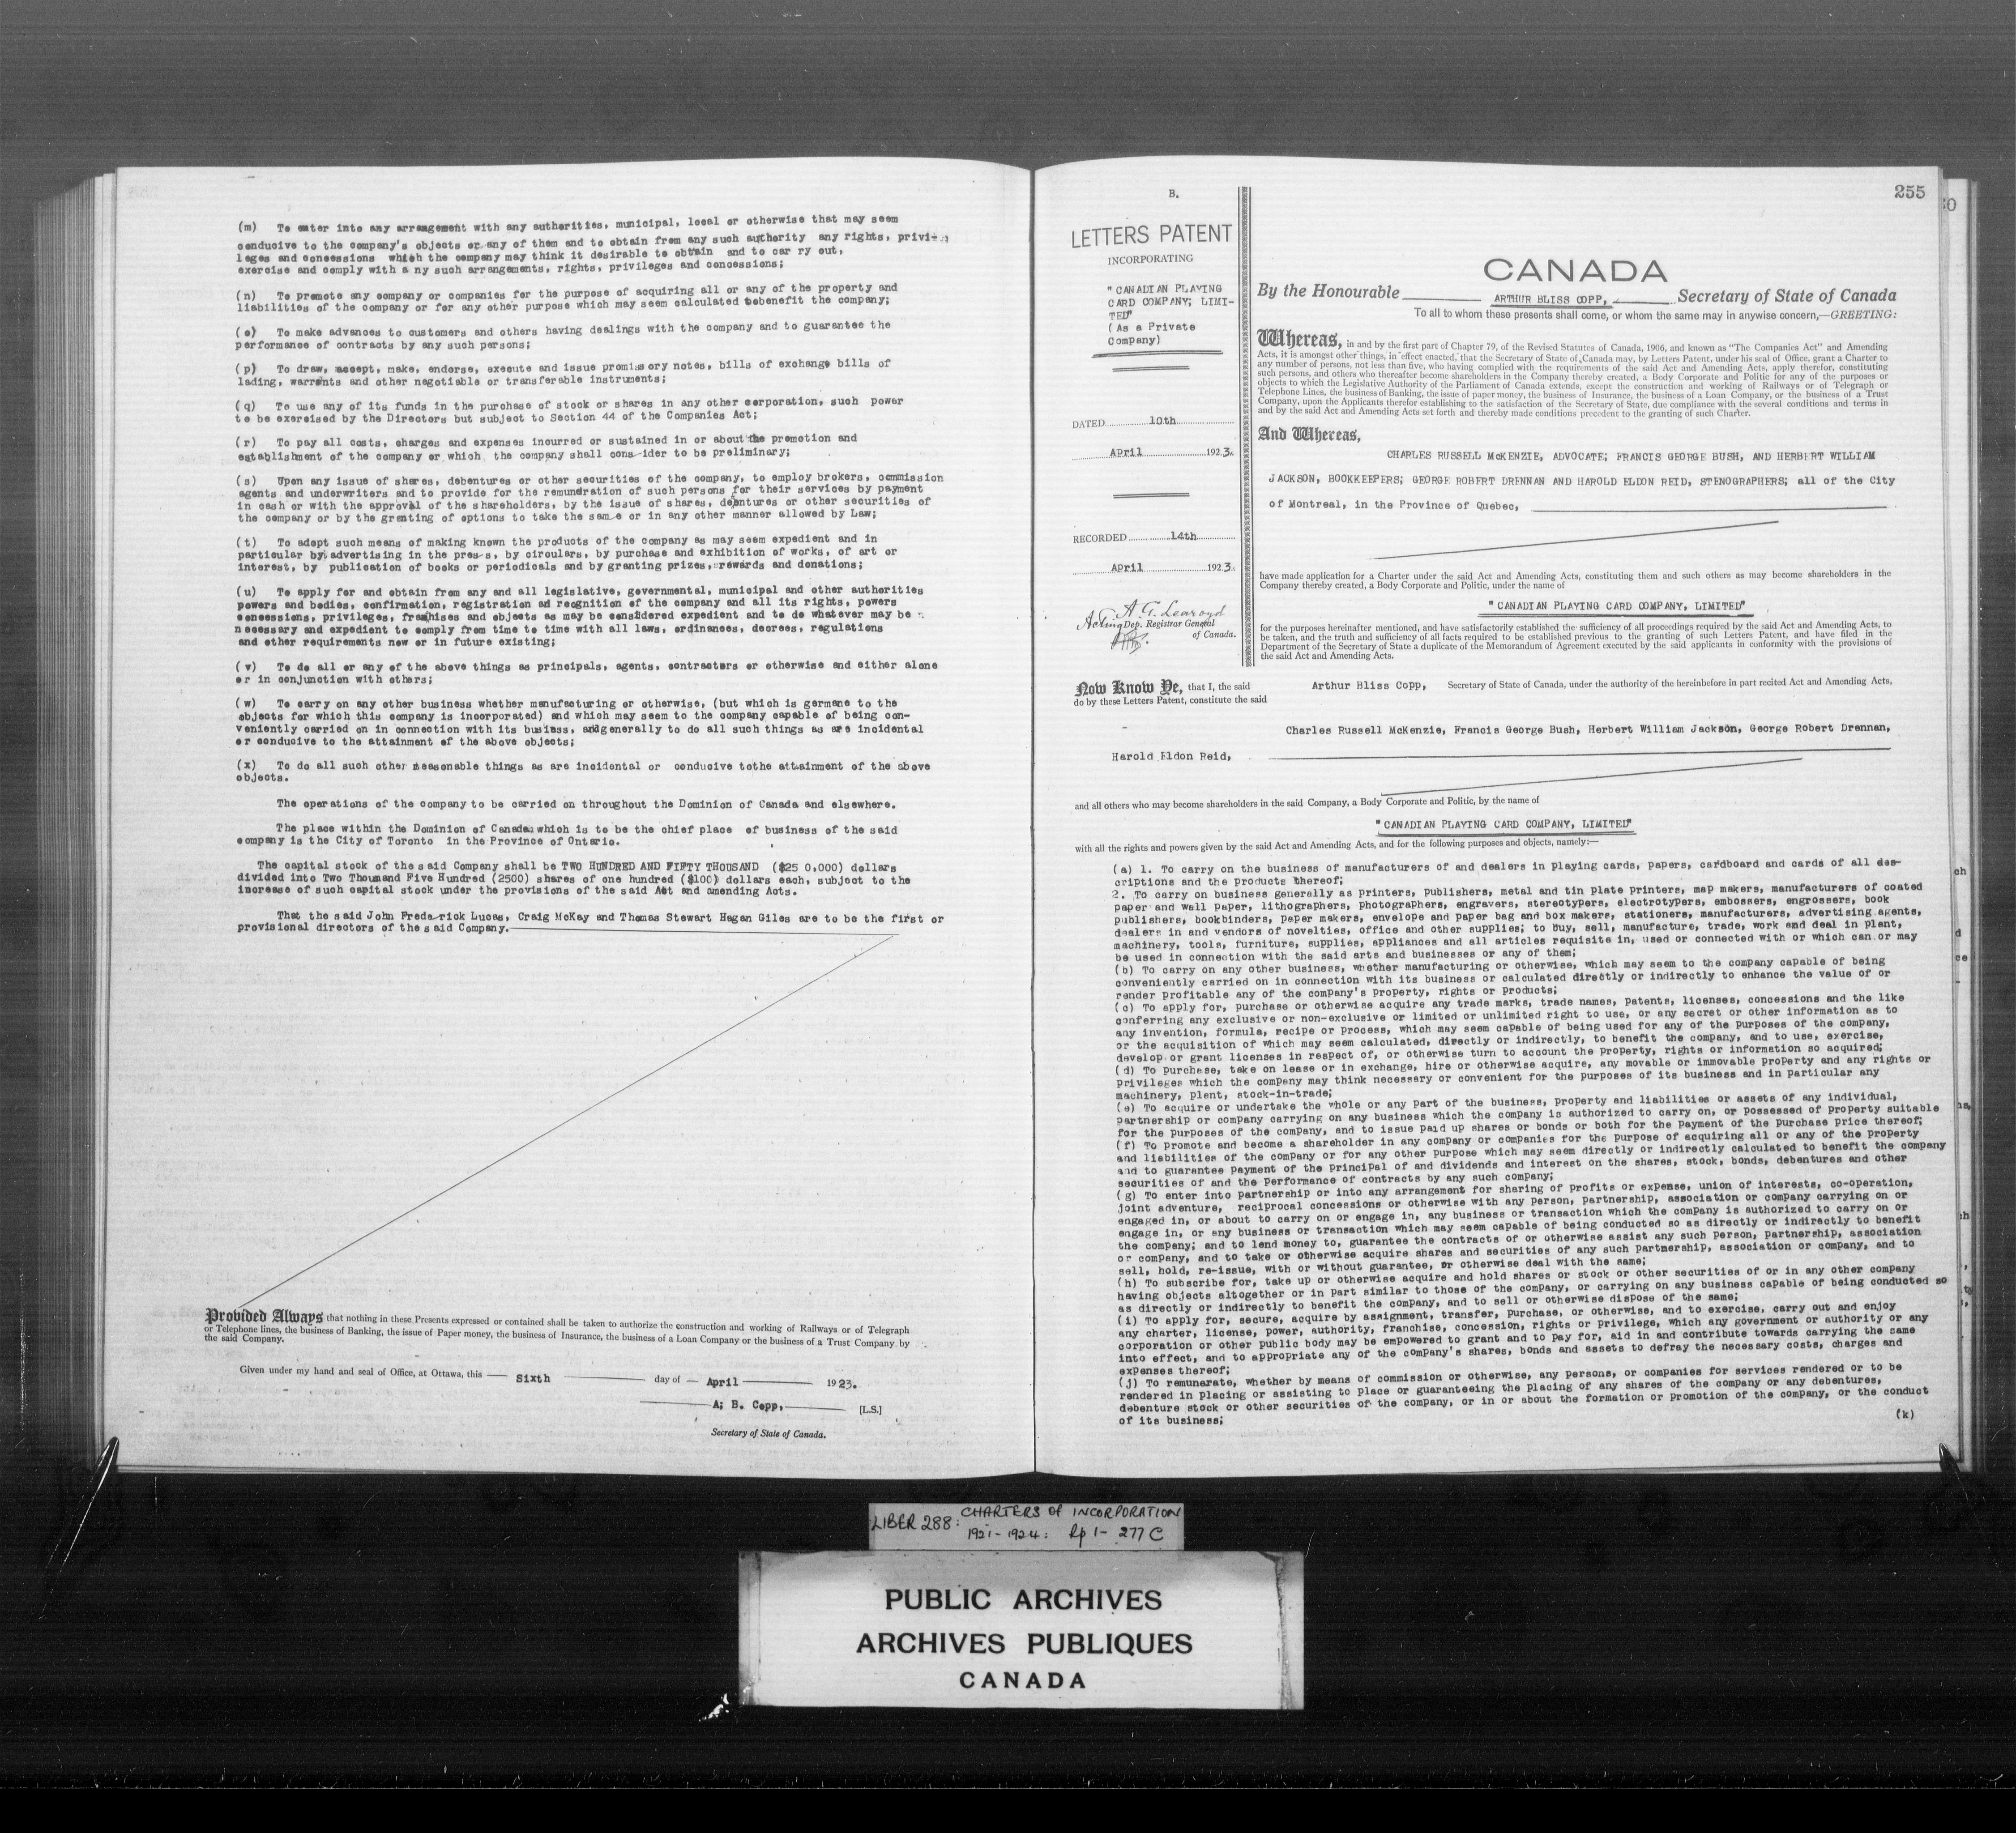 (m) To enter into any arrangement with any authorities, municipal, local or otherwise that may seem
conducive to the company's objects or any of them and to obtain from any such authority any rights, privi-
leges and concessions which the company may think it desirable to obtain and to car ry out,
exercise and comply with a ny such arrangements, rights, privileges and concessions;
(n) To promote any company or companies for the purpose of acquiring all or any of the property and
liabilities of the company or for any other purpose which may seem calculated tobenefit the company;
(o) To make advances to customers and others having dealings with the company and to guarantee the
performance of contracts by any such persons;
(p) To draw, accept, make, endorse, execute and issue promissory notes, bills of exchange bills of
lading, warrants and other negotiable or transferable instruments;
(q) To use any of its funds in the purchase of stock or shares in any other corporation, such power
to be exercised by the Directors but subject to Section 44 of the Companies Act;
(r) To pay all costs, charges and expenses incurred or sustained in or about the promotion and
establishment of the company or which the company shall cons-ider to be preliminary;
(s) Upon any issue of shares, debentures or other securities of the company, to employ brokers, commission
agents and underwriters and to provide for the remuneration of such persons for their services by payment
in cash or with the approval of the shareholders, by the issue of shares, debentures or other securities of
the company or by the granting of options to take the same or in any other manner allowed by Law;
(t) To adopt such means of making known the products of the company as may seem expedient and in
particular by advertising in the press, by circulars, by purchase and exhibition of works, of art or
interest, by publication of books or periodicals and by granting prizes, rewards and donations;
(u) To apply for and obtain from any and all legislative, governmental, municipal and other authorities
powers and bodies, confirmation, registration ad recognition of the company and all its rights, powers
concessions, privileges, franchises and objects as may be considered expedient and to do whatever may be
necessary and expedient to comply from time to time with all laws, ordinances, decrees, regulations
and other requirements now or in future existing;
(v) To do all or any of the above things as principals, agents, contractors or otherwise and either alone
or in conjunction with others;
(w) To carry on any other business whether manufacturing or otherwise, (but which is germane to the
objects for which this company is incorporated) and which may seem to the company capable of being con-
veniently carried on in connection with its businss, andgenerally to do all such things as are incidental
or conducive to the attainment of the above objects;
(x) To do all such other reasonable things as are incidental or conducive tothe attainment of the above
objects.
The operations of the company to be carried on throughout the Dominion of Canada and elsewhere.
The place within the Dominion of Canada which is to be the chief place of business of the said
company is the City of Toronto in the Province of Ontario.
The capital stock of the said Company shall be TWO HUNDRED AND FIFTY THOUSAND ($25 0,000) dollars
divided into Two Thousand Five Hundred (2500) shares of one hundred ($100) dollars each, subject to the
increase of such capital stock under the provisions of the said Act and amending Acts.
That the said John Frederick Lucas, Craig McKay and Thomas Stewart Hagan Giles are to be the first or
provisional directors of the said Company.
Provided Always that nothing in these Presents expressed or contained shall be taken to authorize the construction and working of Railways or of Telegraph
or Telephone lines, the business of Banking, the issue of Paper money, the business of Insurance, the business of a Loan Company or the business of a Trust Company by
the said Company.
Given under my hand and seal of Office, at Ottawa, this — Sixth — day of — April — 1923.
A; B. Copp, [L.S.]
Secretary of State of Canada.
B.
LETTERS PATENT
INCORPORATING
"CANADIAN PLAYING
CARD COMPANY, LIMI-
TED"
(As a Private
Company)
DATED 10th
April 1923.
RECORDED 14th
April 1923.
A. G. Learoyd
Acting Dep. Registrar General
of Canada.
255
CANADA
By the Honourable ARTHUR BLISS COPP, Secretary of State of Canada
To all to whom these presents shall come, or whom the same may in anywise concern,—GREETING:
Whereas, in and by the first part of Chapter 79, of the Revised Statutes of Canada, 1906, and known as "The Companies Act" and Amending
Acts, it is amongst other things, in effect enacted, that the Secretary of State of Canada may, by Letters Patent, under his seal of Office, grant a Charter to
any number of persons, not less than five, who having complied with the requirements of the said Act and Amending Acts, apply therefor, constituting
such persons, and others who thereafter become shareholders in the Company thereby created, a Body Corporate and Politic for any of the purposes or
objects to which the Legislative Authority of the Parliament of Canada extends, except the construction and working of Railways or of Telegraph or
Telephone Lines, the business of Banking, the issue of paper money, the business of Insurance, the business of a Loan Company, or the business of a Trust
Company, upon the Applicants therefor establishing to the satisfaction of the Secretary of State, due compliance with the several conditions and terms in
and by the said Act and Amending Acts set forth and thereby made conditions precedent to the granting of such Charter.
And Whereas,
CHARLES RUSSELL McKENZIE, ADVOCATE; FRANCIS GEORGE BUSH, AND HERBERT WILLIAM
JACKSON, BOOKKEEPERS; GEORGE ROBERT DRENNAN AND HAROLD ELDON REID, STENOGRAPHERS; all of the City
of Montreal, in the Province of Quebec,
have made application for a Charter under the said Act and Amending Acts, constituting them and such others as may become shareholders in the
Company thereby created, a Body Corporate and Politic, under the name of
"CANADIAN PLAYING CARD COMPANY, LIMITED"
for the purposes hereinafter mentioned, and have satisfactorily established the sufficiency of all proceedings required by the said Act and Amending Acts, to
be taken, and the truth and sufficiency of all facts required to be established previous to the granting of such Letters Patent, and have filed in the
Department of the Secretary of State a duplicate of the Memorandum of Agreement executed by the said applicants in conformity with the provisions of
the said Act and Amending Acts.
Now Know Ye, that I, the said Arthur Bliss Copp, Secretary of State of Canada, under the authority of the hereinbefore in part recited Act and Amending Acts,
do by these Letters Patent, constitute the said
Charles Russell McKenzie, Francis George Bush, Herbert William Jackson, George Robert Drennan,
Harold Eldon Reid,
and all others who may become shareholders in the said Company, a Body Corporate and Politic, by the name of
"CANADIAN PLAYING CARD COMPANY, LIMITED"
with all the rights and powers given by the said Act and Amending Acts, and for the following purposes and objects, namely:—
(a) 1. To carry on the business of manufacturers of and dealers in playing cards, papers, cardboard and cards of all des-
criptions and the products thereof;
2. To carry on business generally as printers, publishers, metal and tin plate printers, map makers, manufacturers of coated
paper and wall paper, lithographers, photographers, engravers, stereotypers, electrotypers, embossers, engrossers, book
publishers, bookbinders, paper makers, envelope and paper bag and box makers, stationers, manufacturers, advertising agents,
dealers in and vendors of novelties, office and other supplies; to buy, sell, manufacture, trade, work and deal in plant,
machinery, tools, furniture, supplies, appliances and all articles requisite in, used or connected with or which can or may
be used in connection with the said arts and businesses or any of them;
(b) To carry on any other business, whether manufacturing or otherwise, which may seem to the company capable of being
conveniently carried on in connection with its business or calculated directly or indirectly to enhance the value of or
render profitable any of the company's property, rights or products;
(c) To apply for, purchase or otherwise acquire any trade marks, trade names, patents, licenses, concessions and the like
conferring any exclusive or non-exclusive or limited or unlimited right to use, or any secret or other information as to
any invention, formula, recipe or process, which may seem capable of being used for any of the purposes of the company,
or the acquisition of which may seem calculated, directly or indirectly, to benefit the company, and to use, exercise,
develop or grant licenses in respect of, or otherwise turn to account the property, rights or information so acquired;
(d) To purchase, take on lease or in exchange, hire or otherwise acquire, any movable or immovable property and any rights or
privileges which the company may think necessary or convenient for the purposes of its business and in particular any
machinery, plant, stock-in-trade;
(e) To acquire or undertake the whole or any part of the business, property and liabilities or assets of any individual,
partnership or company carrying on any business which the company is authorized to carry on, or possessed of property suitable
for the purposes of the company, and to issue paid up shares or bonds or both for the payment of the purchase price thereof;
(f) To promote and become a shareholder in any company or companies for the purpose of acquiring all or any of the property
and liabilities of the company or for any other purpose which may seem directly or indirectly calculated to benefit the company
and to guarantee payment of the principal of and dividends and interest on the shares, stock, bonds, debentures and other
securities of and the performance of contracts by any such company;
(g) To enter into partnership or into any arrangement for sharing of profits or expense, union of interests, co-operation,
joint adventure, reciprocal concessions or otherwise with any person, partnership, association or company carrying on or
engaged in, or about to carry on or engage in, any business or transaction which the company is authorized to carry on or
engage in, or any business or transaction which may seem capable of being conducted so as directly or indirectly to benefit
the company; and to lend money to, guarantee the contracts of or otherwise assist any such person, partnership, association
or company, and to take or otherwise acquire shares and securities of any such partnership, association or company, and to
sell, hold, re-issue, with or without guarantee, or otherwise deal with the same;
(h) To subscribe for, take up or otherwise acquire and hold shares or stock or other securities of or in any other company
having objects altogether or in part similar to those of the company, or carrying on any business capable of being conducted so
as directly or indirectly to benefit the company, and to sell or otherwise dispose of the same;
(i) To apply for, secure, acquire by assignment, transfer, purchase, or otherwise, and to exercise, carry out and enjoy
any charter, license, power, authority, franchise, concession, rights or privilege, which any government or authority or any
corporation or other public body may be empowered to grant and to pay for, aid in and contribute towards carrying the same
into effect, and to appropriate any of the company's shares, bonds and assets to defray the necessary costs, charges and
expenses thereof;
(j) To remunerate, whether by means of commission or otherwise, any persons, or companies for services rendered or to be
rendered in placing or assisting to place or guaranteeing the placing of any shares of the company or any debentures,
debenture stock or other securities of the company, or in or about the formation or promotion of the company, or the conduct
of its business;
(k)
LIBER 288: CHARTERS of INCORPORATION
1921-1924: pp 1- 277 C
PUBLIC ARCHIVES
ARCHIVES PUBLIQUES
CANADA